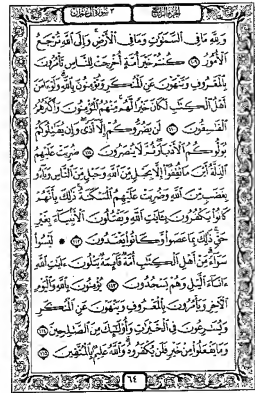 الجزء الرابع ٣ سورة آل عمران
وَلِلَّهِ مَا فِي ٱلسَّمَٰوَٰتِ وَمَا فِي ٱلْأَرْضِ وَإِلَى ٱللَّهِ تُرْجَعُ
ٱلْأُمُورُ ١٠٩ كُنتُمْ خَيْرَ أُمَّةٍ أُخْرِجَتْ لِلنَّاسِ تَأْمُرُونَ
بِٱلْمَعْرُوفِ وَتَنْهَوْنَ عَنِ ٱلْمُنكَرِ وَتُؤْمِنُونَ بِٱللَّهِ وَلَوْ ءَامَنَ
أَهْلُ ٱلْكِتَٰبِ لَكَانَ خَيْرًا لَّهُم مِّنْهُمُ ٱلْمُؤْمِنُونَ وَأَكْثَرُهُمُ
ٱلْفَٰسِقُونَ ١١٠ لَن يَضُرُّوكُمْ إِلَّآ أَذًى وَإِن يُقَٰتِلُوكُمْ
يُوَلُّوكُمُ ٱلْأَدْبَارَ ثُمَّ لَا يُنصَرُونَ ١١١ ضُرِبَتْ عَلَيْهِمُ
ٱلذِّلَّةُ أَيْنَ مَا ثُقِفُوٓا۟ إِلَّا بِحَبْلٍ مِّنَ ٱللَّهِ وَحَبْلٍ مِّنَ ٱلنَّاسِ وَبَآءُو
بِغَضَبٍ مِّنَ ٱللَّهِ وَضُرِبَتْ عَلَيْهِمُ ٱلْمَسْكَنَةُ ذَٰلِكَ بِأَنَّهُمْ
كَانُوا۟ يَكْفُرُونَ بِـَٔايَٰتِ ٱللَّهِ وَيَقْتُلُونَ ٱلْأَنۢبِيَآءَ بِغَيْرِ
حَقٍّ ذَٰلِكَ بِمَا عَصَوا۟ وَّكَانُوا۟ يَعْتَدُونَ ١١٢ لَيْسُوا۟
سَوَآءً مِّنْ أَهْلِ ٱلْكِتَٰبِ أُمَّةٌ قَآئِمَةٌ يَتْلُونَ ءَايَٰتِ ٱللَّهِ
ءَانَآءَ ٱلَّيْلِ وَهُمْ يَسْجُدُونَ ١١٣ يُؤْمِنُونَ بِٱللَّهِ وَٱلْيَوْمِ
ٱلْءَاخِرِ وَيَأْمُرُونَ بِٱلْمَعْرُوفِ وَيَنْهَوْنَ عَنِ ٱلْمُنكَرِ
وَيُسَٰرِعُونَ فِي ٱلْخَيْرَٰتِ وَأُو۟لَٰٓئِكَ مِنَ ٱلصَّٰلِحِينَ ١١٤
وَمَا يَفْعَلُوا۟ مِنْ خَيْرٍ فَلَن يُكْفَرُوهُ وَٱللَّهُ عَلِيمٌۢ بِٱلْمُتَّقِينَ ١١٥
٦٤